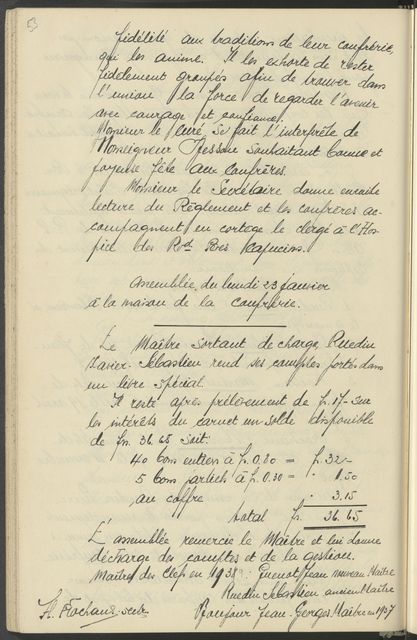 53
fidélité aux traditions de leur confrérie,
qui les anime. Il les exhorte de rester
fidèlement groupés afin de trouver dans
l'union la force de regarder l'avenir
avec courage et confiance.
Monsieur le Curé, se fait l'interprète de
Monseigneur souhaitant bonne et
joyeuse fête aux confrères.
Monsieur le Secrétaire donne ensuite
lecture du Règlement et les confrères ac-
compagnent en cortège le clergé à l'Hos-
pice des Rds Pères Capucins.
Assemblée du lundi 23 janvier
à la maison de la Confrérie.
Le Maître sortant de charge, Ruedin
Xavier-Sébastien rend ses comptes portés dans
un livre spécial.
Il reste après prélèvement de fr. 17- sur
les intérêts du carnet un solde disponible
de frs. 36.65 soit:
40 bons entiers à f. 0.80 = fr. 32.-
5 bons partiels à f. 0.30 = " 1.50
au coffre " 3.15
total fr. 36.65
L'assemblée remercie le Maître et lui donne
décharge des comptes et de la gestion.
Maîtres des Clef en 1938: Guenot Jean nouveau Maître
Ruedin Sébastien ancien Maître
secr. Bonjour Jean-Georges Maître en 1937